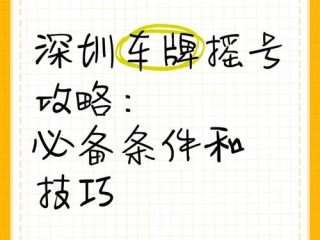 深圳车牌摇号
攻略：
必备条件和
技巧